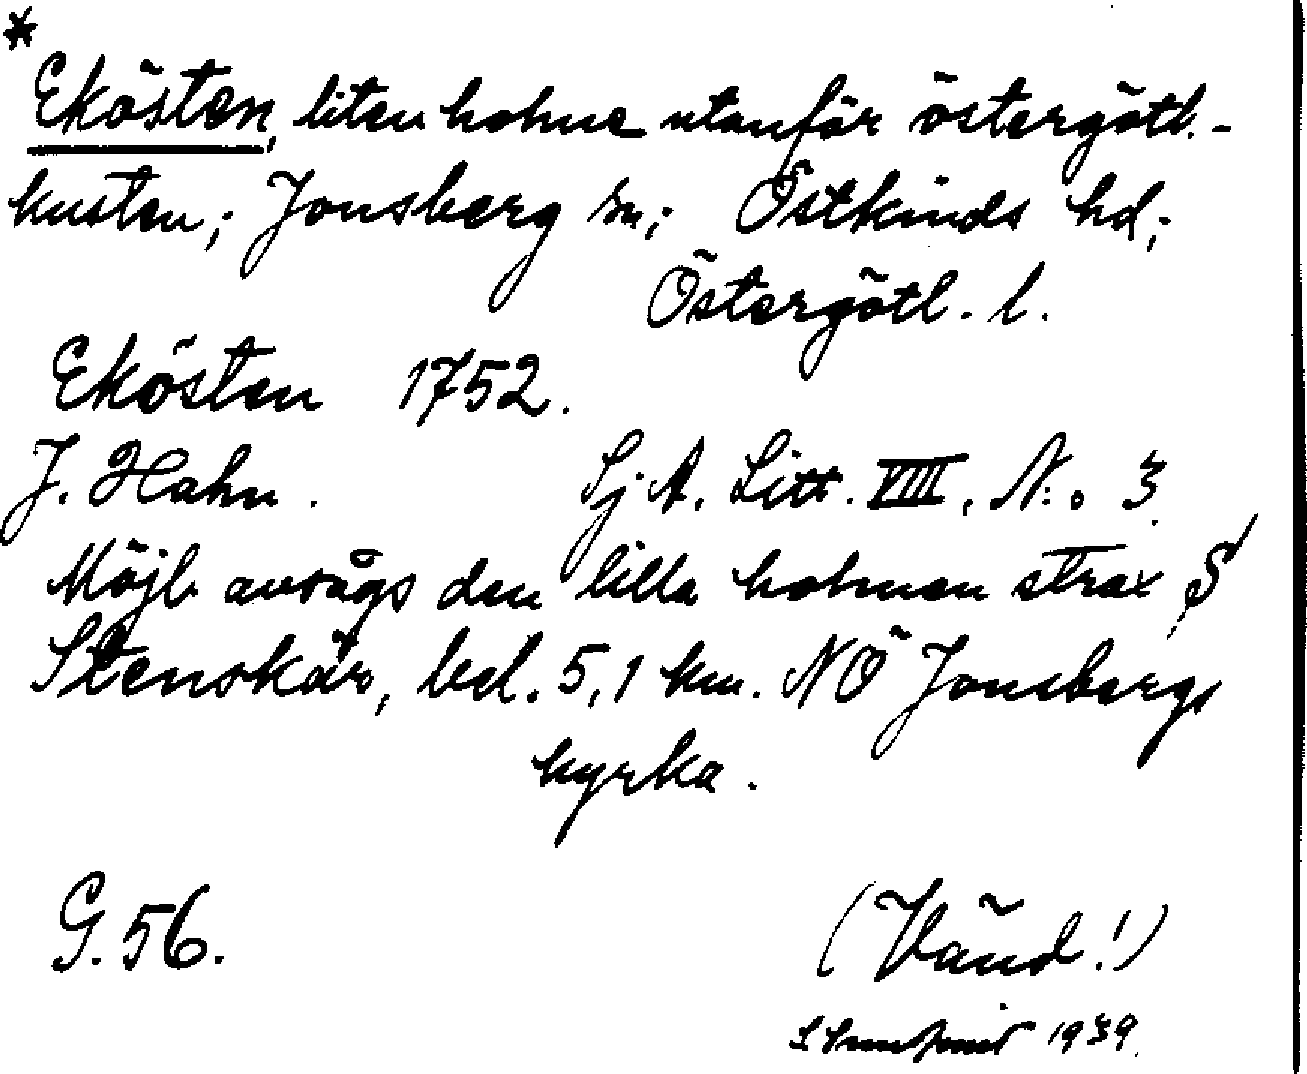 *
Ekösten, liten holme utanför östergötl.-
kusten; Jonsberg sn; Östkinds hd;
Östergötl. l.
Ekösten 1752.
J. Hahn. Sj. A. Litt. VIII, N:o 3.
Möjl. avsågs den lilla holmen strax S
Stenskär, bel. 5,1 km. NÖ Jonsbergs
kyrka.
G. 56. (Vänd!)
1939.